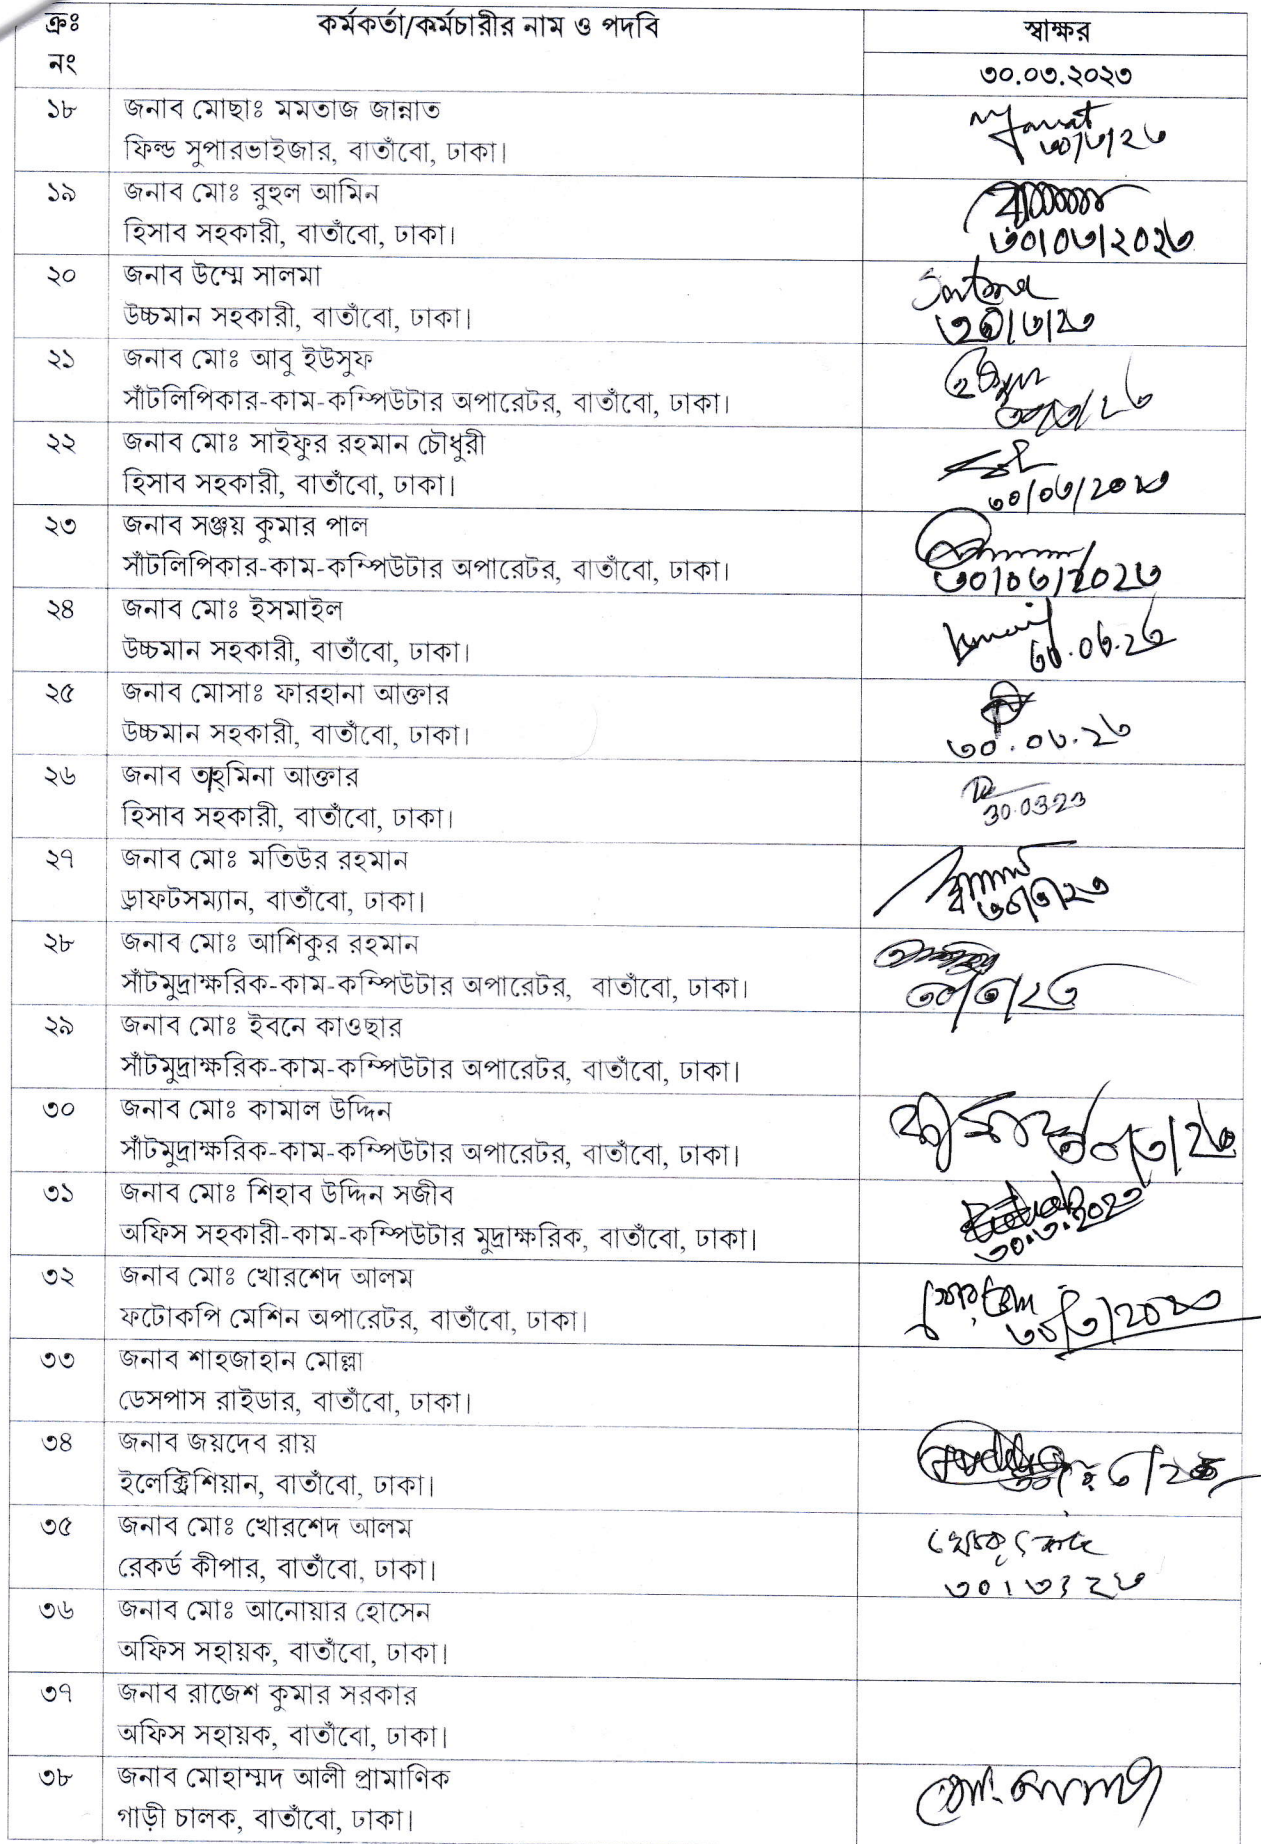 ক্রঃ
নং
কর্মকর্তা/কর্মচারীর নাম ও পদবি
স্বাক্ষর
৩০.০৩.২০২৩
১৮ জনাব মোছাঃ মমতাজ জান্নাত
ফিল্ড সুপারভাইজার, বাতাঁবো, ঢাকা।
৩০/৩/২৩
১৯ জনাব মোঃ রুহুল আমিন
হিসাব সহকারী, বাতাঁবো, ঢাকা।
৩০/০৩/২০২৩
২০ জনাব উম্মে সালমা
উচ্চমান সহকারী, বাতাঁবো, ঢাকা।
৩০/৩/২৩
২১ জনাব মোঃ আবু ইউসুফ
সাঁটলিপিকার-কাম-কম্পিউটার অপারেটর, বাতাঁবো, ঢাকা।
৩০/৩/২৩
২২ জনাব মোঃ সাইফুর রহমান চৌধুরী
হিসাব সহকারী, বাতাঁবো, ঢাকা।
৩০/০৩/২০২৩
২৩ জনাব সঞ্জয় কুমার পাল
সাঁটলিপিকার-কাম-কম্পিউটার অপারেটর, বাতাঁবো, ঢাকা।
৩০/০৩/২০২৩
২৪ জনাব মোঃ ইসমাইল
উচ্চমান সহকারী, বাতাঁবো, ঢাকা।
৩০.০৩.২৩
২৫ জনাব মোসাঃ ফারহানা আক্তার
উচ্চমান সহকারী, বাতাঁবো, ঢাকা।
৩০.০৩.২৩
২৬ জনাব তাহমিনা আক্তার
হিসাব সহকারী, বাতাঁবো, ঢাকা।
30.03.23
২৭ জনাব মোঃ মতিউর রহমান
ড্রাফটসম্যান, বাতাঁবো, ঢাকা।
৩০/৩/২৩
২৮ জনাব মোঃ আশিকুর রহমান
সাঁটমুদ্রাক্ষরিক-কাম-কম্পিউটার অপারেটর, বাতাঁবো, ঢাকা।
৩০/৩/২৩
২৯ জনাব মোঃ ইবনে কাওছার
সাঁটমুদ্রাক্ষরিক-কাম-কম্পিউটার অপারেটর, বাতাঁবো, ঢাকা।
৩০ জনাব মোঃ কামাল উদ্দিন
সাঁটমুদ্রাক্ষরিক-কাম-কম্পিউটার অপারেটর, বাতাঁবো, ঢাকা।
কামাল ৩০/৩/২৩
৩১ জনাব মোঃ শিহাব উদ্দিন সজীব
অফিস সহকারী-কাম-কম্পিউটার মুদ্রাক্ষরিক, বাতাঁবো, ঢাকা।
৩০.৩.২০২৩
৩২ জনাব মোঃ খোরশেদ আলম
ফটোকপি মেশিন অপারেটর, বাতাঁবো, ঢাকা।
৩০/৩/২০২৩
৩৩ জনাব শাহজাহান মোল্লা
ডেসপাস রাইডার, বাতাঁবো, ঢাকা।
৩৪ জনাব জয়দেব রায়
ইলেক্ট্রিশিয়ান, বাতাঁবো, ঢাকা।
৩৫ জনাব মোঃ খোরশেদ আলম
রেকর্ড কীপার, বাতাঁবো, ঢাকা।
৩৬ জনাব মোঃ আনোয়ার হোসেন
অফিস সহায়ক, বাতাঁবো, ঢাকা।
৩৭ জনাব রাজেশ কুমার সরকার
অফিস সহায়ক, বাতাঁবো, ঢাকা।
৩৮ জনাব মোহাম্মদ আলী প্রামাণিক
গাড়ী চালক, বাতাঁবো, ঢাকা।